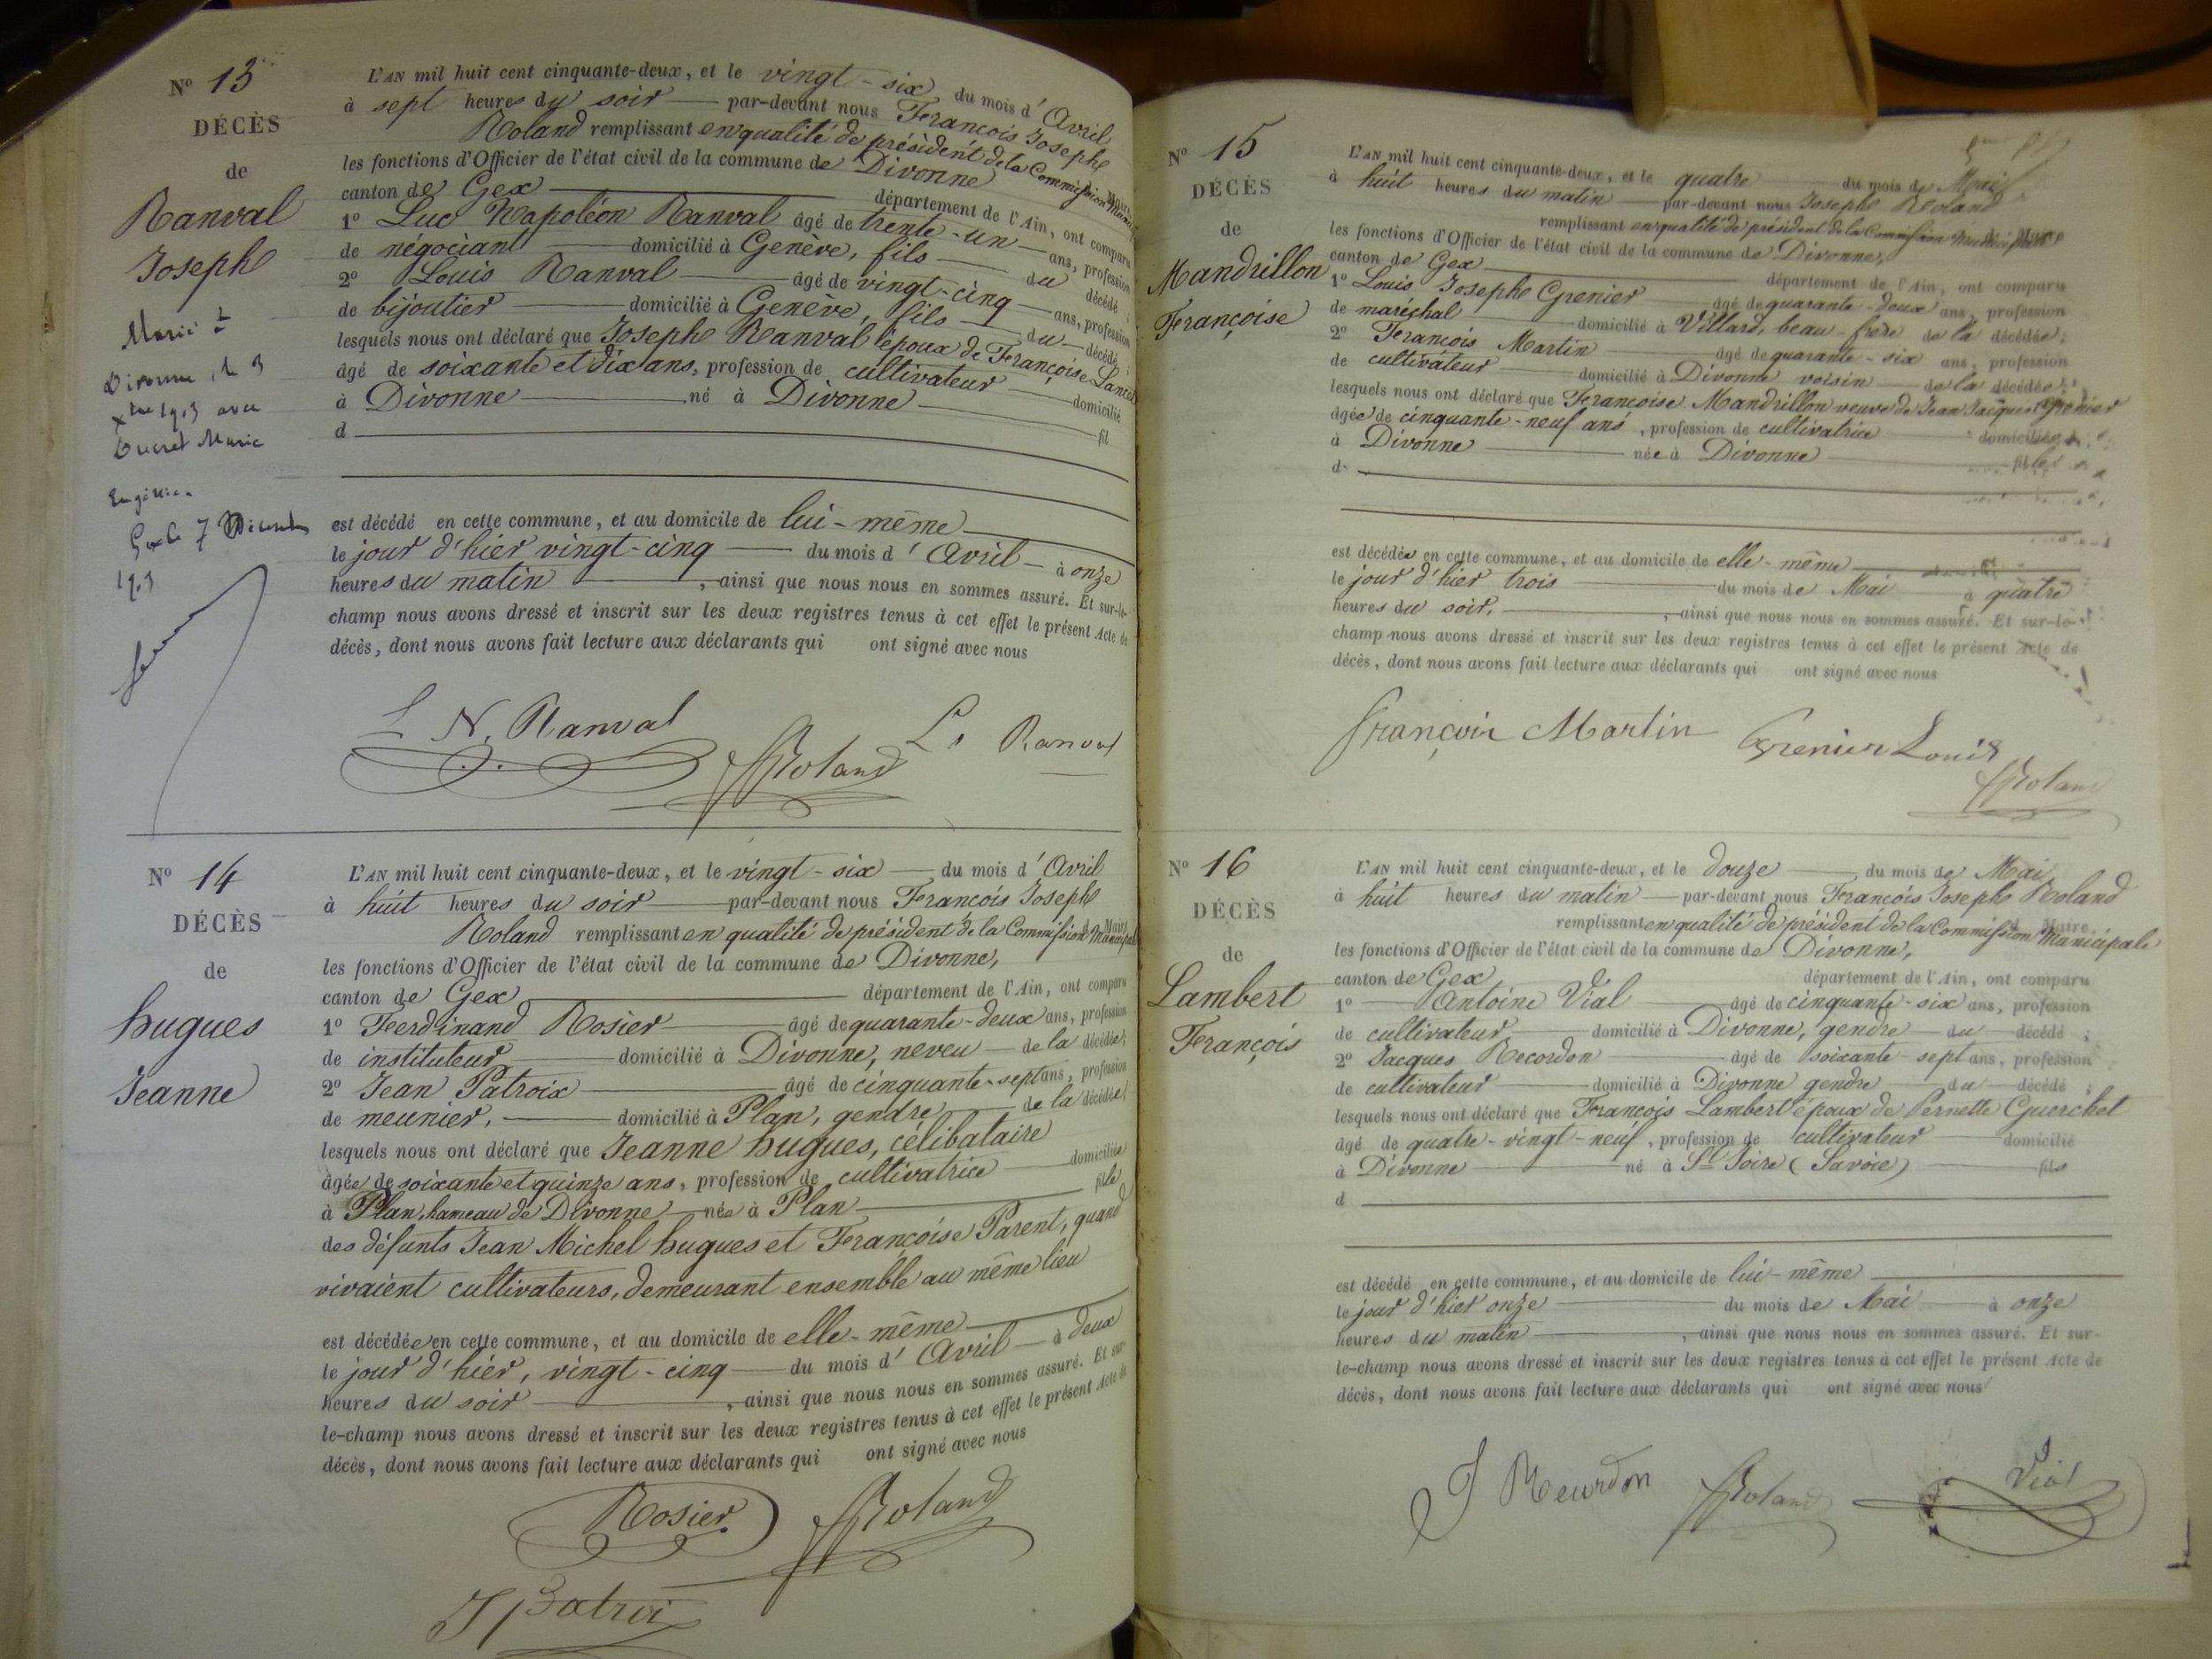 N° 13
DÉCÈS
de
Ranval
Joseph
Marié à
Divonne, le 3
xbre 1903 avec
Ducret Marie
Eugénie.
Gex le 7 Décembre
1903
L'AN mil huit cent cinquante-deux, et le vingt-six du mois d'Avril
à sept heures du soir par-devant nous François Joseph
Roland remplissant en qualité de président de la Commission
les fonctions d'Officier de l'état civil de la commune de Divonne
canton de Gex département de l'Ain, ont comparu
1° Luc Napoléon Ranval âgé de trente-un ans, profession
de négociant domicilié à Genève, fils du décédé;
2° Louis Ranval âgé de vingt-cinq ans, profession
de bijoutier domicilié à Genève, fils du décédé;
lesquels nous ont déclaré que Joseph Ranval époux de Françoise
âgé de soixante et dix ans, profession de cultivateur domicilié
à Divonne né à Divonne fil
d
est décédé en cette commune, et au domicile de lui-même
le jour d'hier vingt-cinq du mois d'Avril à onze
heures du matin, ainsi que nous nous en sommes assuré. Et sur-le-
champ nous avons dressé et inscrit sur les deux registres tenus à cet effet le présent Acte de
décès, dont nous avons fait lecture aux déclarants qui ont signé avec nous
L N. Ranval Roland Ls Ranval
N° 14
DÉCÈS
de
hugues
Jeanne
L'AN mil huit cent cinquante-deux, et le vingt-six du mois d'Avril
à huit heures du soir par-devant nous François Joseph
Roland remplissant en qualité de président de la Commission Municipale
les fonctions d'Officier de l'état civil de la commune de Divonne,
canton de Gex département de l'Ain, ont comparu
1° Ferdinand Rosier âgé de quarante-deux ans, profession
de instituteur domicilié à Divonne, neveu de la décédée;
2° Jean Patroix âgé de cinquante-sept ans, profession
de meunier, domicilié à Plan, gendre de la décédée;
lesquels nous ont déclaré que Jeanne hugues, célibataire
âgée de soixante et quinze ans, profession de cultivatrice domiciliée
à Plan, hameau de Divonne née à Plan fille
des défunts Jean Michel hugues et Françoise Parent, quand
vivaient cultivateurs, demeurant ensemble au même lieu
est décédée en cette commune, et au domicile de elle-même
le jour d'hier, vingt-cinq du mois d'Avril à deux
heures du soir, ainsi que nous nous en sommes assuré. Et sur-
le-champ nous avons dressé et inscrit sur les deux registres tenus à cet effet le présent Acte de
décès, dont nous avons fait lecture aux déclarants qui ont signé avec nous
Rosier Roland
J Patroi
N° 15
DÉCÈS
de
Mandrillon
Françoise
L'AN mil huit cent cinquante-deux, et le quatre du mois de Mai
à huit heures du matin par-devant nous Joseph Roland
remplissant en qualité de président de la Commission Municipale
les fonctions d'Officier de l'état civil de la commune de Divonne,
canton de Gex département de l'Ain, ont comparu
1° Louis Joseph Grenier âgé de quarante-deux ans, profession
de maréchal domicilié à Villard, beau-frère de la décédée;
2° François Martin âgé de quarante-six ans, profession
de cultivateur domicilié à Divonne voisin de la décédée;
lesquels nous ont déclaré que Françoise Mandrillon veuve de Jean Jacques Grenier
âgée de cinquante-neuf ans, profession de cultivatrice domiciliée
à Divonne née à Divonne fille
d
est décédée en cette commune, et au domicile de elle-même
le jour d'hier trois du mois de Mai à quatre
heures du soir, ainsi que nous nous en sommes assuré. Et sur-le-
champ nous avons dressé et inscrit sur les deux registres tenus à cet effet le présent Acte de
décès, dont nous avons fait lecture aux déclarants qui ont signé avec nous
françois Martin Grenier Louis
Roland
N° 16
DÉCÈS
de
Lambert
François
L'AN mil huit cent cinquante-deux, et le douze du mois de Mai
à huit heures du matin par-devant nous François Joseph Roland
remplissant en qualité de président de la Commission Municipale
les fonctions d'Officier de l'état civil de la commune de Divonne,
canton de Gex département de l'Ain, ont comparu
1° Antoine Vial âgé de cinquante-six ans, profession
de cultivateur domicilié à Divonne, gendre du décédé;
2° Jacques Recordon âgé de soixante-sept ans, profession
de cultivateur domicilié à Divonne gendre du décédé;
lesquels nous ont déclaré que François Lambert époux de Pernette Guerchet
âgé de quatre-vingt-neuf, profession de cultivateur domicilié
à Divonne né à St Joire (Savoie) fils
d
est décédé en cette commune, et au domicile de lui-même
le jour d'hier onze du mois de Mai à onze
heures du matin, ainsi que nous nous en sommes assuré. Et sur-
le-champ nous avons dressé et inscrit sur les deux registres tenus à cet effet le présent Acte de
décès, dont nous avons fait lecture aux déclarants qui ont signé avec nous
J Reurdon Roland Vial